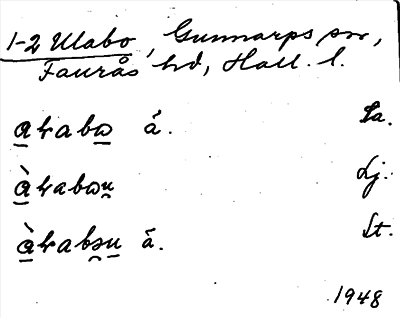 1-2 Ulabo, Gunnarps sn,
Faurås hd, Hall. l.
a̲ƚabω̲ á. Sa.
à̲ƚabωṵ Lj.
à̲ƚabɔ̯u̲ á. St.
1948